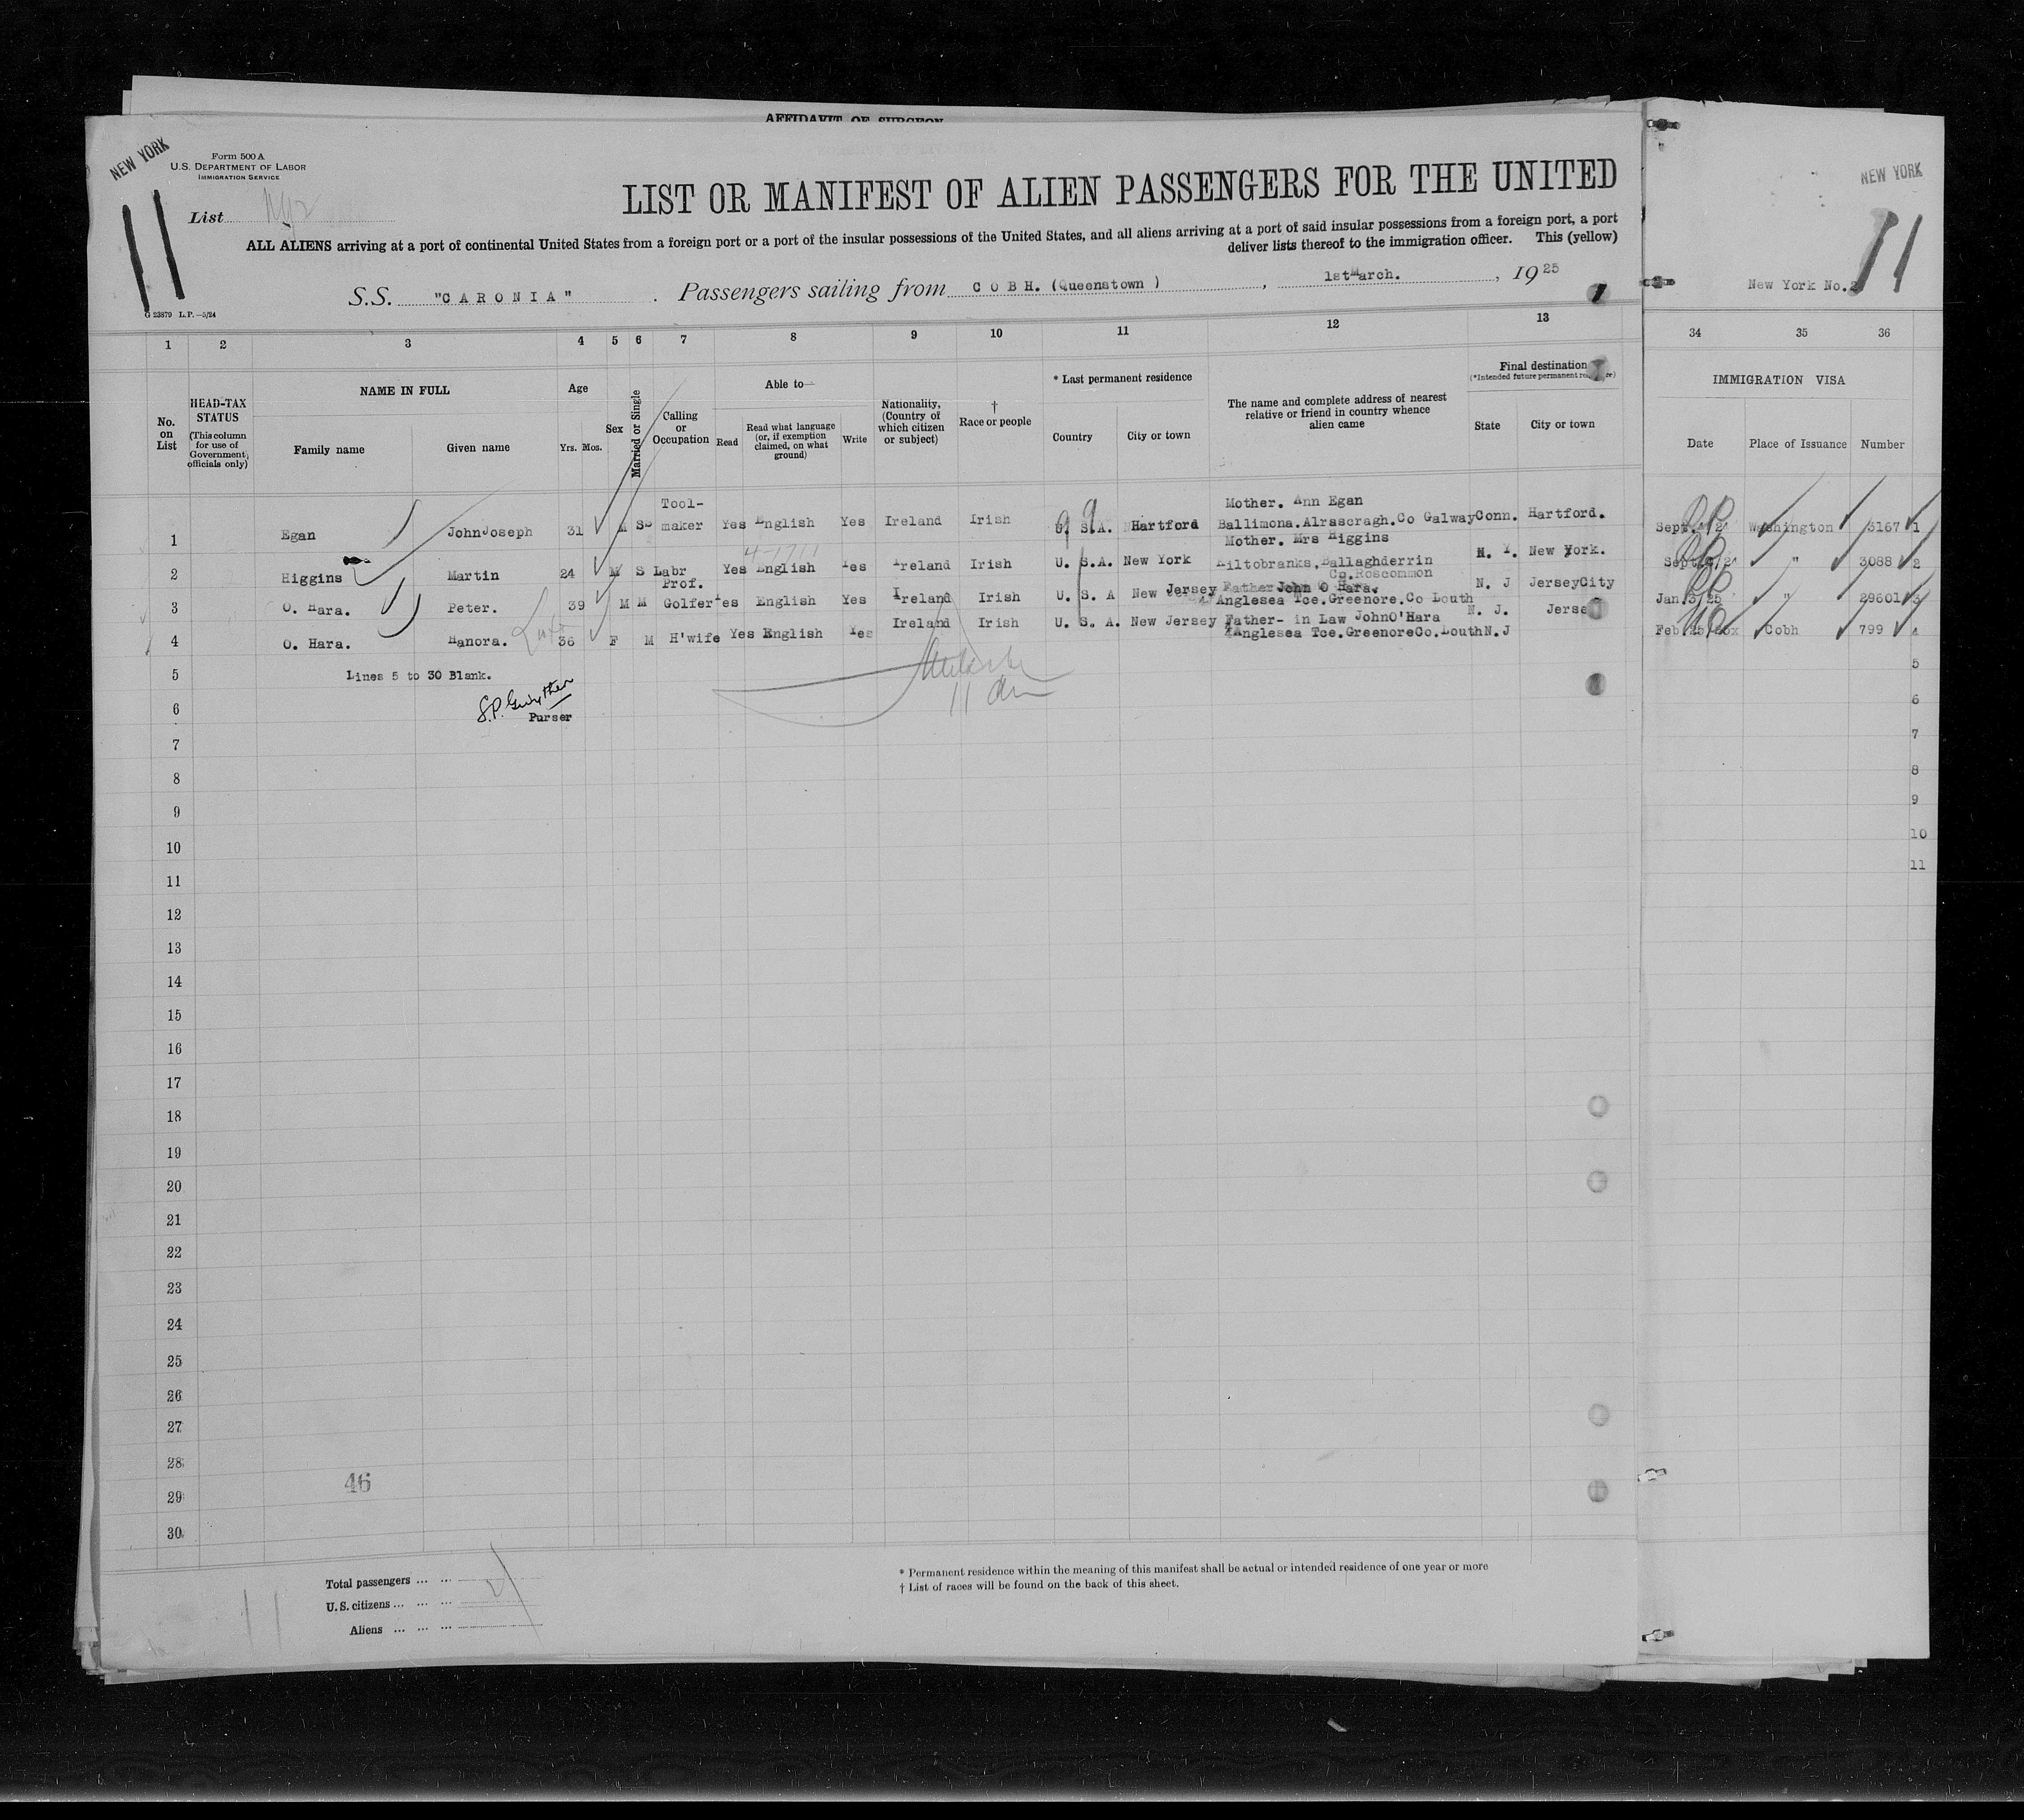 AFFIDAVIT OF SURGEON
NEW YORK
Form 500 A
U.S. DEPARTMENT OF LABOR
IMMIGRATION SERVICE
11
List
LIST OR MANIFEST OF ALIEN PASSENGERS FOR THE UNITED
ALL ALIENS arriving at a port of continental United States from a foreign port or a port of the insular possessions of the United States, and all aliens arriving at a port of said insular possessions from a foreign port, a port
deliver lists thereof to the immigration officer. This (yellow)
S.S. "CARONIA". Passengers sailing from COBH. (Queenstown), 1st March., 1925
G 23879 L.P.—5/24
NEW YORK
11
New York No. 2
1 2 3 4 5 6 7 8 9 10 11 12 13 34 35 36
No. on List
HEAD-TAX STATUS
(This column for use of Government officials only)
NAME IN FULL
Family name Given name
Age
Yrs. Mos.
Sex
Married or Single
Calling or Occupation
Able to—
Read
Read what language (or, if exemption claimed, on what ground)
Write
Nationality, (Country of which citizen or subject)
† Race or people
* Last permanent residence
Country City or town
The name and complete address of nearest relative or friend in country whence alien came
Final destination
(*Intended future permanent
State City or town
IMMIGRATION VISA
Date Place of Issuance Number
1 Egan John Joseph 31 M S Tool-maker Yes English Yes Ireland Irish U. S.A. Hartford Mother. Ann Egan Ballimona. Alrascragh. Co Galway Conn. Hartford. Washington 3167 1
2 Higgins Martin 24 M S Labr Yes English Yes Ireland Irish U. S.A. New York Mother. Mrs Higgins Kiltobranks, Ballaghderrin Co. Roscommon N. Y. New York. " 3088 2
3 O. Hara. Peter. 39 M M Prof. Golfer Yes English Yes Ireland Irish U. S. A New Jersey Father John O Hara. Anglesea Tce. Greenore. Co Louth N. J Jersey City Jan. 3/25 " 29601 3
4 O. Hara. Hanora. 36 F M H'wife Yes English Yes Ireland Irish U. S. A. New Jersey Father- in Law John O'Hara Anglesea Tce. Greenore Co. Louth N. J. N.J Jerse Cobh 799 4
5 Lines 5 to 30 Blank. 5
6 Purser 6
7 7
8 8
9 9
10 10
11 11
12
13
14
15
16
17
18
19
20
21
22
23
24
25
26
27
28
29 46
30
Total passengers ... ...
U.S. citizens ... ... ...
Aliens ... ... ...
* Permanent residence within the meaning of this manifest shall be actual or intended residence of one year or more
† List of races will be found on the back of this sheet.